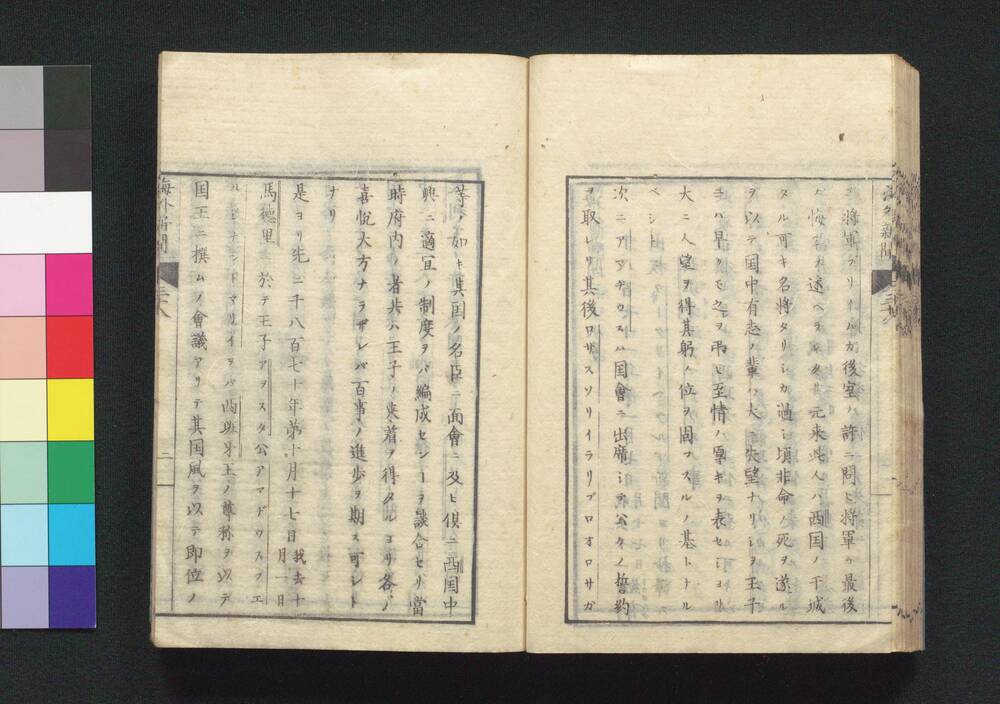 海外新聞
将軍プリイムガ後室ハ許ニ問ヒ将軍ノ最後
ヲ悔ミヲ述ヘラレタリ元来此人ハ西国ノ干城
タル可キ名将タリシカ過シ頃非命ノ死ヲ遂ル
ヲ以テ国中有志ノ輩ハ大ニ失望ナリシヲ王子
ニハ早クモ之ヲ弔ヒ至情ノ厚キヲ表セシヨリ
大ニ人望ヲ得其躬ノ位ヲ固フスルノ基トナル
ベシ
次ニアマデロスハ国會ニ出席シテ公ケノ誓約
ヲ取レリ其後ロザスソリイラリブロオロサガ
等ノ如キ其国ノ名臣ニ面會ニ及ヒ倶ニ西国中
興ニ適宜ノ制度ヲバ編成セシヿヲ議合セリ當
時府内ノ者共ハ王子ノ来着ノ得タルヨリ各々ノ
喜悦大方ナラザレバ百事ノ進歩ヲ期ス可シト
ナリ
是ヨリ先ニ千八百七十年第十月十七日我去十月一日
馬徳里 於テ王子アヲスタ公アマドウスフエ
ルジナンドマリイヲバ西班牙王ノ尊称ヲ以テ
国王ニ撰ムノ會議アリテ其国風ヲ以テ即位ノ
海外新聞